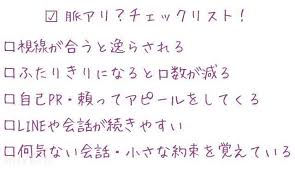 ☑ 脈アリ?チェックリスト!
□視線が合うと逸らされる
□ふたりきりになると口数が減る
□自己PR・頼ってアピールをしてくる
□LINEや会話が続きやすい
□何気ない会話・小さな約束を覚えている